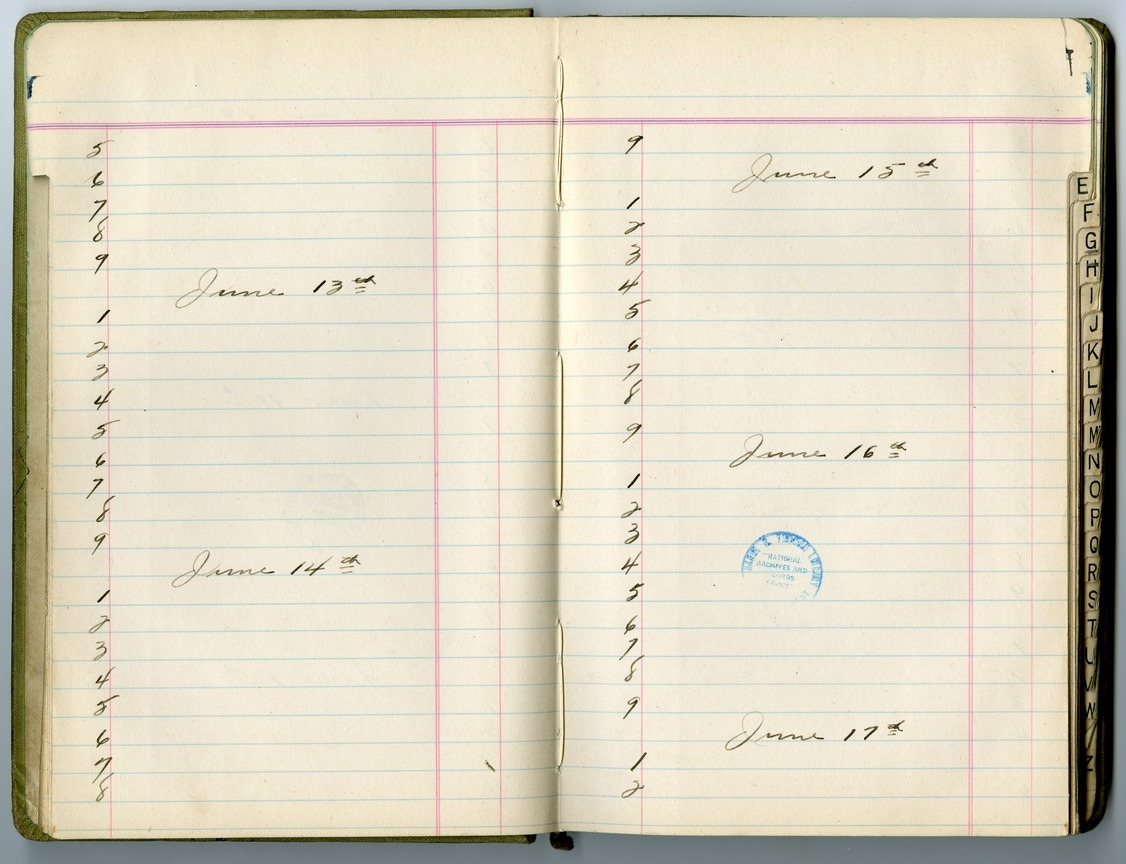 5
6
7
8
9
June 13th
1
2
3
4
5
6
7
8
9
June 14th
1
2
3
4
5
6
7
8
9
June 15th
1
2
3
4
5
6
7
8
9
June 16th
1
2
3
4
5
6
7
8
9
June 17th
1
2
"NATIONAL
ARCHIVES AND
E
F
G
H
I
J
K
L
M
M
N
O
P
Q
R
S
T
U
V
W
Z